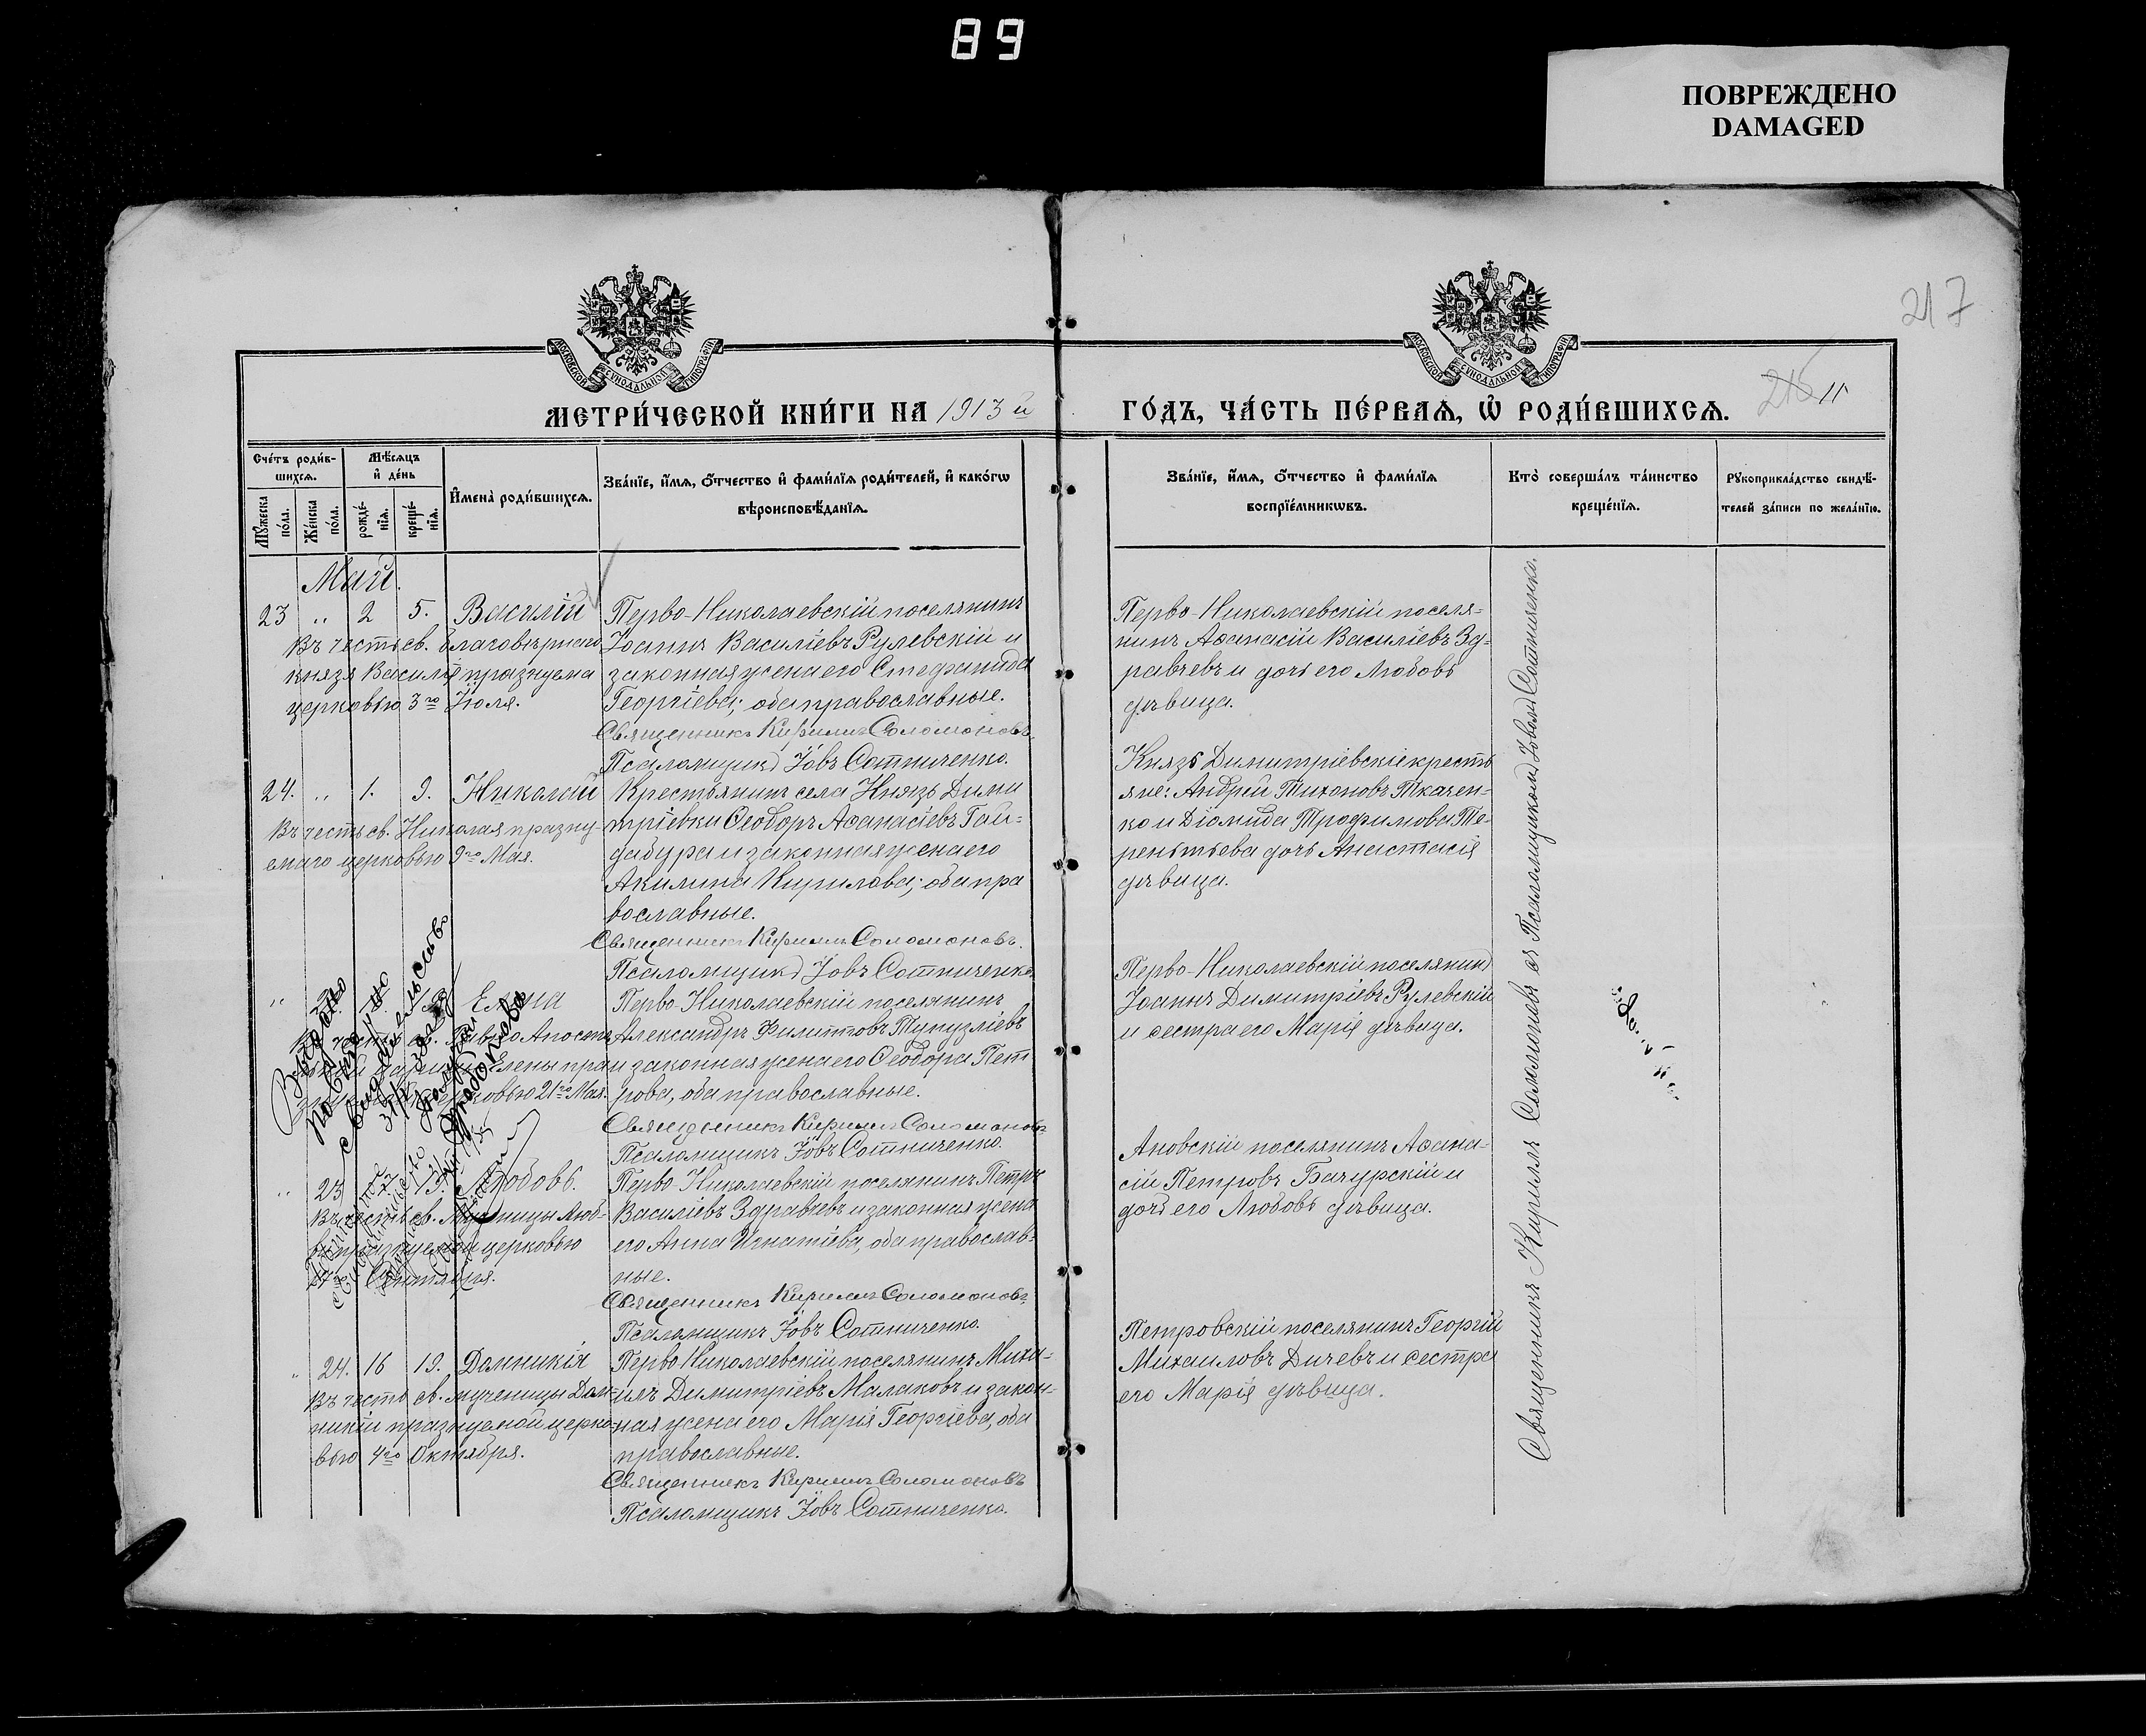 89
ПОВРЕЖДЕНО
DAMAGED
217
МОСКОВСКОЙ СѴНОДАЛЬНОЙ ТИПОГРАФІИ
МОСКОВСКОЙ СѴНОДАЛЬНОЙ ТИПОГРАФІИ
МЕТРИ́ЧЕСКОЙ КНИ́ГИ НА 1913 й
ГО́ДЪ, ЧА́СТЬ ПЕ́РВАѦ, Ѿ РОДИ́ВШИХСѦ.
11
Сче́тъ роди́в-
шихсѧ.
Мѣ́сѧцъ
и҆ де́нь
Мꙋ́жеска по́ла.
Же́нска по́ла.
рожде́-нїѧ.
креще́-нїѧ.
И҆мена̀ роди́вшихсѧ.
Зва́нїе, и҆́мѧ, ѻ҆́тчество и҆ фами́лїѧ роди́телей, и҆ како́гѡ
вѣроисповѣ́данїѧ.
Зва́нїе, и҆́мѧ, ѻ҆́тчество и҆ фами́лїѧ
воспрїе́мникѡвъ.
Кто̀ соверша́лъ та́инство
креще́нїѧ.
Рꙋкоприкла́дство свидѣ́-
телей за́писи по жела́нїю.
Май.
23 „ 2 5. Василій
Въ честь св. благовѣрнаго
князя Василія празнуема
церковью 3го Іюля.
Перво-Николаевскій поселянинъ
Іоаннъ Василіевъ Рулевскій и
законная жена его Стефанида
Георгіева; оба православные.
Священникъ Кириллъ Соломоновъ.
Псаломщикъ Іовъ Сотниченко.
Перво-Николаевскій поселя=
нинъ Аѳанасій Василіевъ Зд=
равчевъ и дочь его Любовь
дѣвица.
24. „ 1. 9. Николай
Въ честь св. Николая празну-
емаго церковью 9го Мая.
Крестьянинъ села Князь Дими
тріевки Ѳеодоръ Аѳанасіевъ Гай=
дабура и законная жена его
Акилина Кирилова; оба пра
вославные.
Священникъ Кириллъ Соломоновъ.
Псаломщикъ Іовъ Сотниченко
Князь Димитріевскіе кресть
яне: Андрей Тихоновъ Ткачен-
ко и Діомида Трофимова Те-
рентьева дочь Анастасія
дѣвица.
„ Елена
Елены пра
церковью 21го Мая.
Перво-Николаевскій поселянинъ
Александръ Филипповъ Тукузліевъ
и законная жена его Ѳеодора Пет
рова, оба православные.
Священникъ Кириллъ Соломоновъ
Псаломщикъ Іовъ Сотниченко.
Перво-Николаевскій поселянинъ
Іоаннъ Димитріевъ Рулевскій
и сестра его Марія дѣвица.
Выдано
„ 23 7 13. Любовь.
Въ честь св. Мученицы Люб-
ви празнуемой церковью
Сентября.
Перво-Николаевскій поселянинъ Петръ
Василіевъ Здравчевъ и законная жена
его Анна Игнатіева, оба православ-
ные.
Священникъ Кириллъ Соломоновъ.
Псаломщикъ Іовъ Сотниченко.
Ановскій поселянинъ Аѳана-
сій Петровъ Бачурскій и
дочь его Любовь дѣвица.
„ 24. 16 19. Домникія
Въ честь св. мученицы Дом-
никіи празнуемой церко-
вью 4го Октября.
Перво Николаевскій поселянинъ Миха-
илъ Димитріевъ Малаковъ и закон-
ная жена его Марія Георгіева, оба
православные.
Священникъ Кириллъ Соломоновъ
Псаломщикъ Іовъ Сотниченко.
Петровскій поселянинъ Георгій
Михаиловъ Дичевъ и сестра
его Марія дѣвица.
Священникъ Кириллъ Соломоновъ съ Псаломщикомъ Іовомъ Сотниченко.